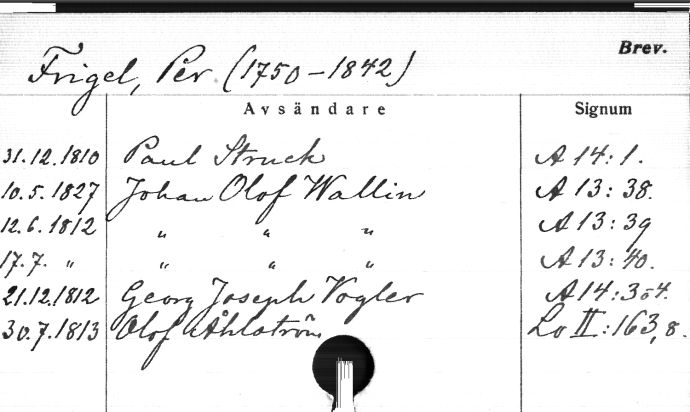 Brev.
Frigel, Per (1750–1842)
Avsändare Signum
31.12.1810 Paul Struck A 14:1.
10.5.1827 Johan Olof Wallin A 13:38.
12.6.1812 " " " A 13:39
17.7. " " " " A 13:40.
21.12.1812 Georg Joseph Vogler A 14:3 54.
30.7.1813 Olof Åhlström Lo II:163,8.